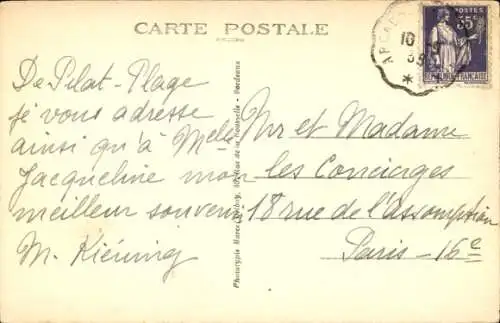 CARTE POSTALE
POSTES
65c
REPUBLIQUE FRANCAISE
10
39
De Pilat-Plage
je vous adresse
ainsi qu'à Melle
Jacqueline mon
meilleur souvenir
M.
Mr et Madame
les Concierges
18 rue de l'assomption
Paris-16e
Phototypie Marcel Delboy, Bordeaux